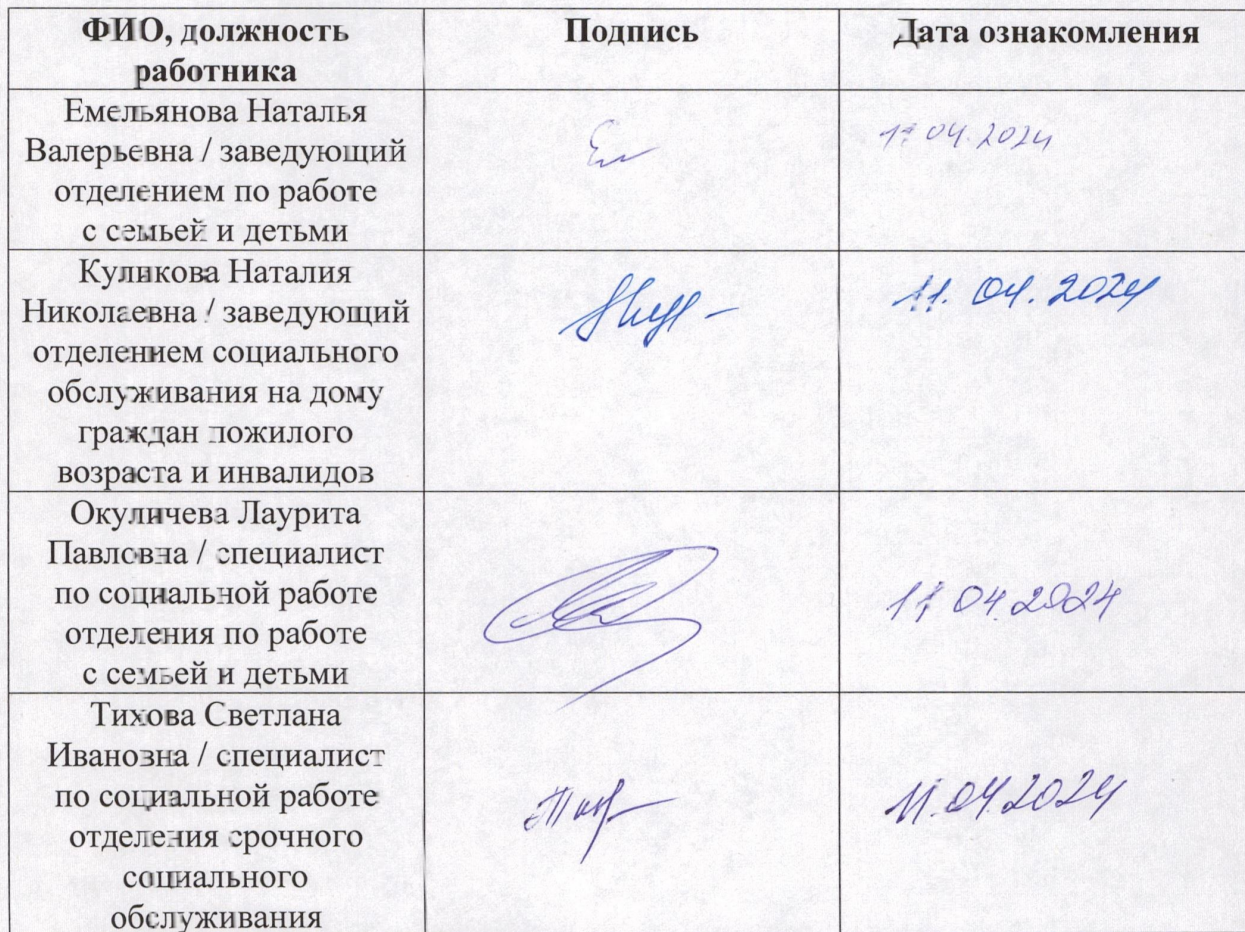 ФИО, должность Подпись Дата ознакомления
работника
Емельянова Наталья
Валерьевна / заведующий 11.04.2024
отделением по работе
с семьей и детьми
Куликова Наталия
Николаевна / заведующий 11.04.2024
отделением социального
обслуживания на дому
граждан пожилого
возраста и инвалидов
Окуличева Лаурита
Павловна / специалист
по социальной работе 11 04 2024
отделения по работе
с семьей и детьми
Тихова Светлана
Ивановна / специалист
по социальной работе 11.04.2024
отделения срочного
социального
обслуживания